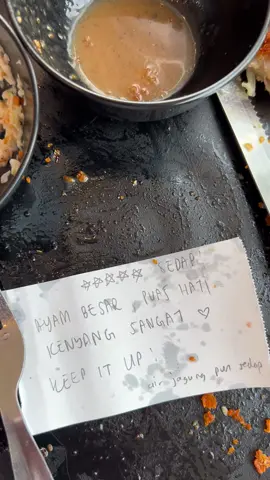 ☆☆☆☆☆ SEDAP
AYAM BESAR, PUAS HATI
KENYANG SANGAT ♡
KEEP IT UP!
air jagung pun sedap